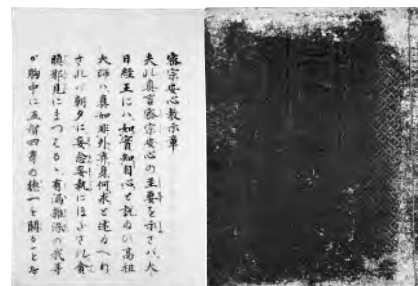 密宗安心教示章
夫れ真言密宗安心の主要を示さバ大
日経王にハ如實知自心と説ゐひ高祖
大師ハ真如非外棄身何求と述ゐへり
されバ朝夕に妄念妄執にほふされ貪
瞋邪見にまつハるゝ有漏雑染の我等
が胸中に五智四身の徳を開ることを